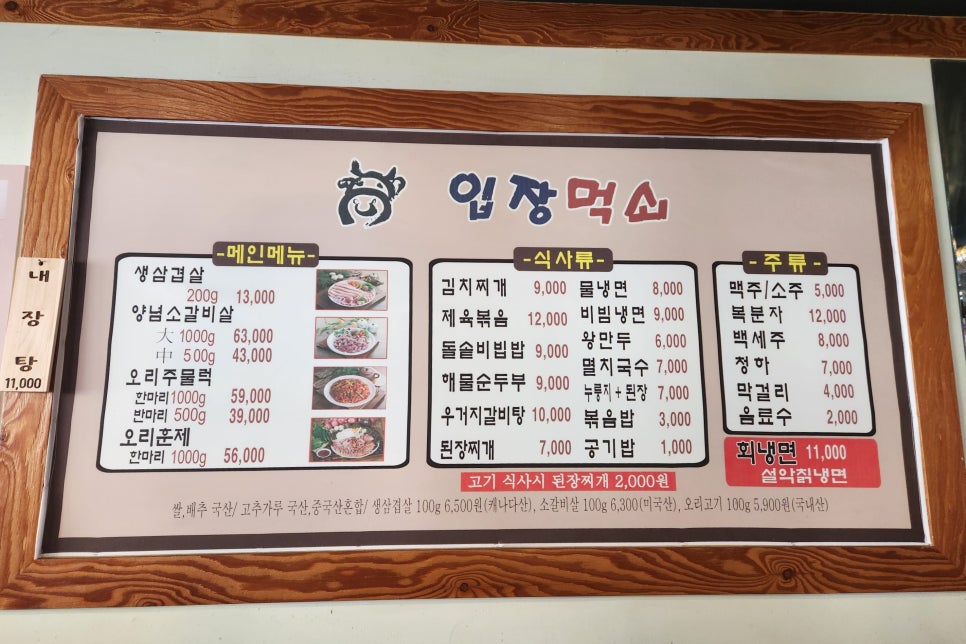 입장먹쇠
-메인메뉴-
생삼겹살
200g 13,000
양념소갈비살
大 1000g 63,000
中 500g 43,000
오리주물럭
한마리 1000g 59,000
반마리 500g 39,000
오리훈제
한마리 1000g 56,000
-식사류-
김치찌개 9,000
제육볶음 12,000
돌솥비빔밥 9,000
해물순두부 9,000
우거지갈비탕 10,000
된장찌개 7,000
물냉면 8,000
비빔냉면 9,000
왕만두 6,000
멸치국수 7,000
누룽지+된장 7,000
볶음밥 3,000
공기밥 1,000
고기 식사시 된장찌개 2,000원
-주류-
맥주/소주 5,000
복분자 12,000
백세주 8,000
청하 7,000
막걸리 4,000
음료수 2,000
회냉면 11,000
설악칡냉면
쌀,배추 국산/ 고추가루 국산,중국산혼합/ 생삼겹살 100g 6,500원(캐나다산), 소갈비살 100g 6,300(미국산), 오리고기 100g 5,900원(국내산)
내
장
탕
11,000